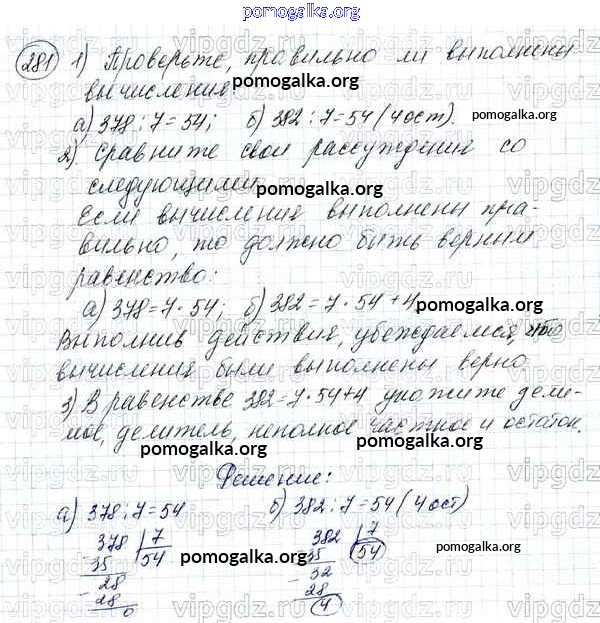 pomogalka.org
281 1) Проверьте, правильно ли выполнены
вычисления
pomogalka.org
а) 378 : 7 = 54; б) 382 : 7 = 54 (4 ост).
pomogalka.org
2) Сравните свои рассуждения со
следующими
pomogalka.org
Если вычисления выполнены пра-
вильно, то должно быть верным
равенство:
а) 378 = 7 · 54; б) 382 = 7 · 54 + 4
pomogalka.org
Выполнив действия, убеждаемся, что
вычисления были выполнены верно.
3) В равенстве 382 = 7 · 54 + 4 укажите дели-
мое, делитель, неполное частное и остаток.
pomogalka.org
Решение:
а) 378 : 7 = 54 б) 382 : 7 = 54 (4 ост)
378 7 382 7
35 54 35 54
pomogalka.org pomogalka.org
28 32
28 28
0 4
pomogalka.org